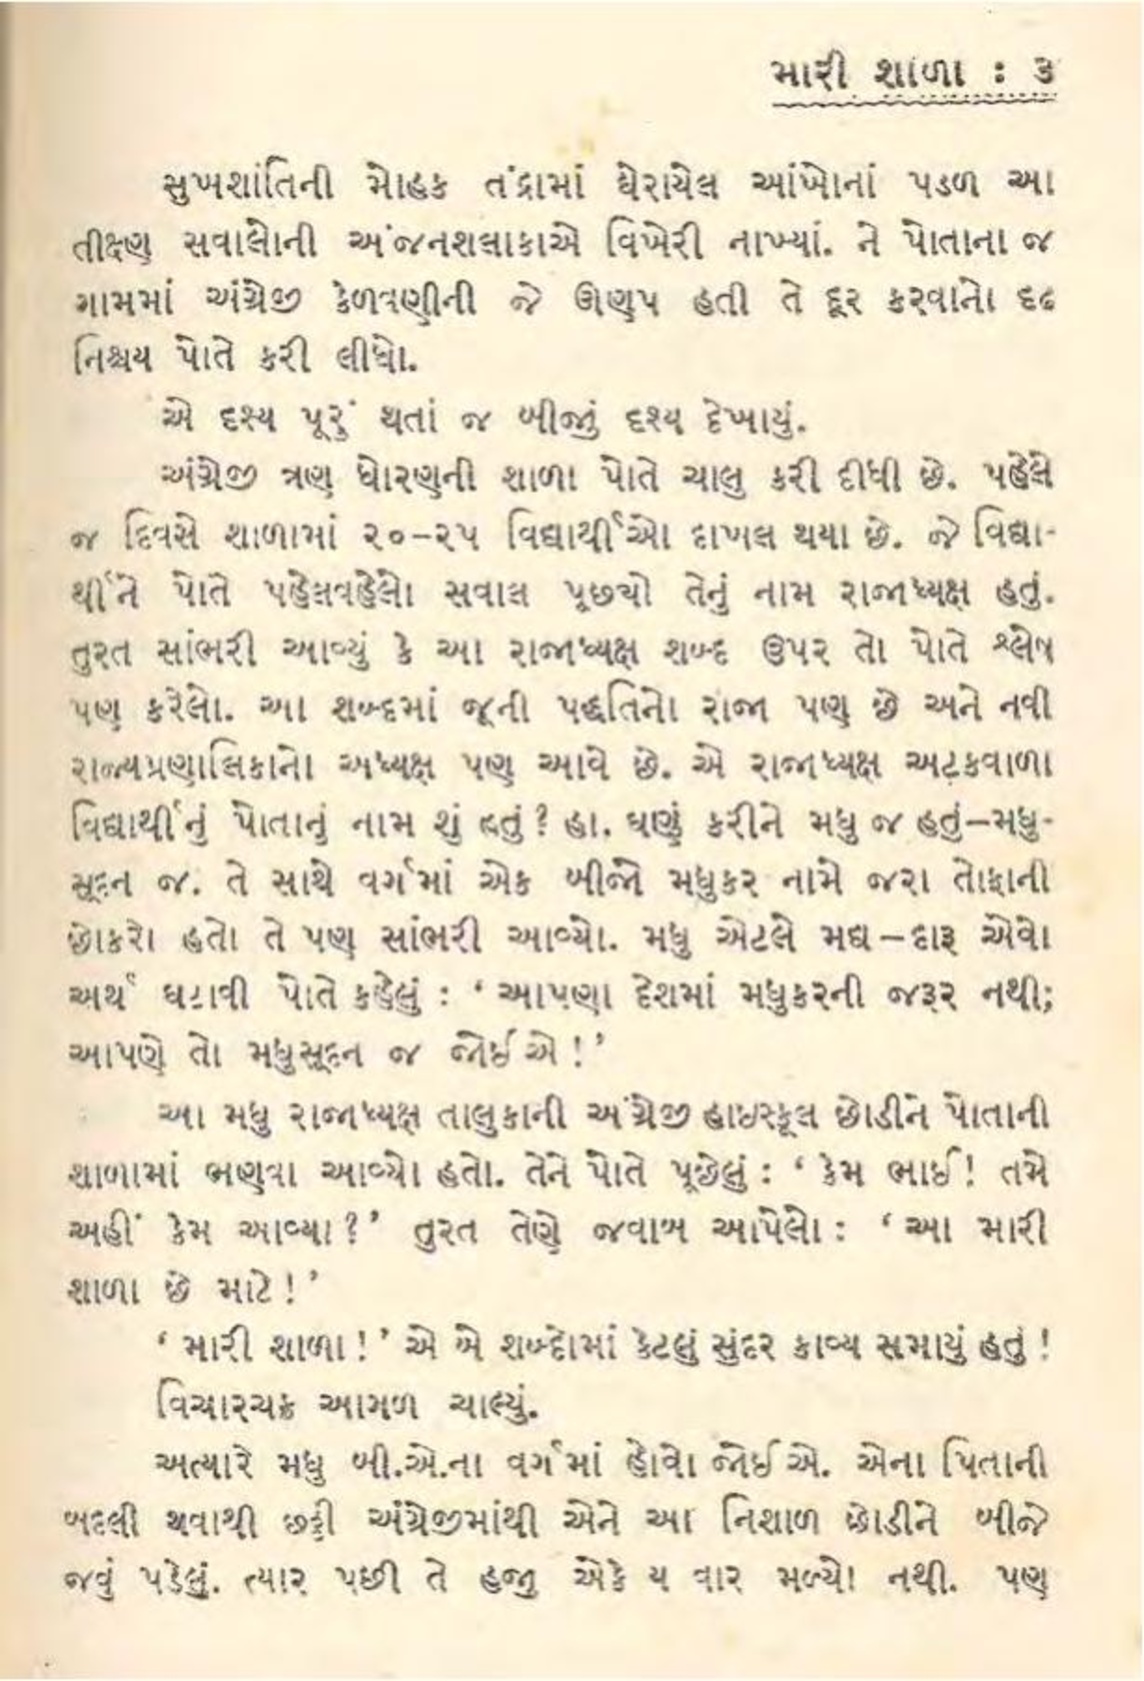 મારી શાળા : ૩
સુખશાંતિની મોહક તંદ્રામાં ઘેરાયેલ આંખોનાં પડળ આ
તીક્ષ્ણ સવાલોની અંજનશલાકાએ વિખેરી નાખ્યાં. ને પોતાના જ
ગામમાં અંગ્રેજી કેળવણીની જે ઊણપ હતી તે દૂર કરવાનો દૃઢ
નિશ્ચય પોતે કરી લીધો.
એ દૃશ્ય પૂરું થતાં જ બીજું દૃશ્ય દેખાયું.
અંગ્રેજી ત્રણ ધોરણની શાળા પોતે ચાલુ કરી દીધી છે. પહેલે
જ દિવસે શાળામાં ૨૦-૨૫ વિદ્યાર્થીઓ દાખલ થયા છે. જે વિદ્યા-
ર્થીને પોતે પહેલવહેલો સવાલ પૂછ્યો તેનું નામ રાજાધ્યક્ષ હતું.
તુરત સાંભરી આવ્યું કે આ રાજાધ્યક્ષ શબ્દ ઉપર તો પોતે શ્લેષ
પણ કરેલો. આ શબ્દમાં જૂની પદ્ધતિનો રાજા પણ છે અને નવી
રાજ્યપ્રણાલિકાનો અધ્યક્ષ પણ આવે છે. એ રાજાધ્યક્ષ અટકવાળા
વિદ્યાર્થીનું પોતાનું નામ શું હતું? હા. ઘણું કરીને મધુ જ હતું-મધુ-
સૂદન જ. તે સાથે વર્ગમાં એક બીજો મધુકર નામે જરા તોફાની
છોકરો હતો તે પણ સાંભરી આવ્યો. મધુ એટલે મદ્ય – દારૂ એવો
અર્થ ઘટાવી પોતે કહેલું : ‘ આપણા દેશમાં મધુકરની જરૂર નથી;
આપણે તો મધુસૂદન જ જોઈએ ! ’
આ મધુ રાજાધ્યક્ષ તાલુકાની અંગ્રેજી હાઇસ્કૂલ છોડીને પોતાની
શાળામાં ભણવા આવ્યો હતો. તેને પોતે પૂછેલું : ‘ કેમ ભાઈ! તમે
અહીં કેમ આવ્યા ? ’ તુરત તેણે જવાબ આપેલો : ‘ આ મારી
શાળા છે માટે ! ’
‘ મારી શાળા ! ’ એ બે શબ્દોમાં કેટલું સુંદર કાવ્ય સમાયું હતું !
વિચારચક્ર આગળ ચાલ્યું.
અત્યારે મધુ બી.એ.ના વર્ગમાં હોવો જોઈએ. એના પિતાની
બદલી થવાથી છઠ્ઠી અંગ્રેજીમાંથી એને આ નિશાળ છોડીને બીજે
જવું પડેલું. ત્યાર પછી તે હજી એકે ય વાર મળ્યો નથી. પણ